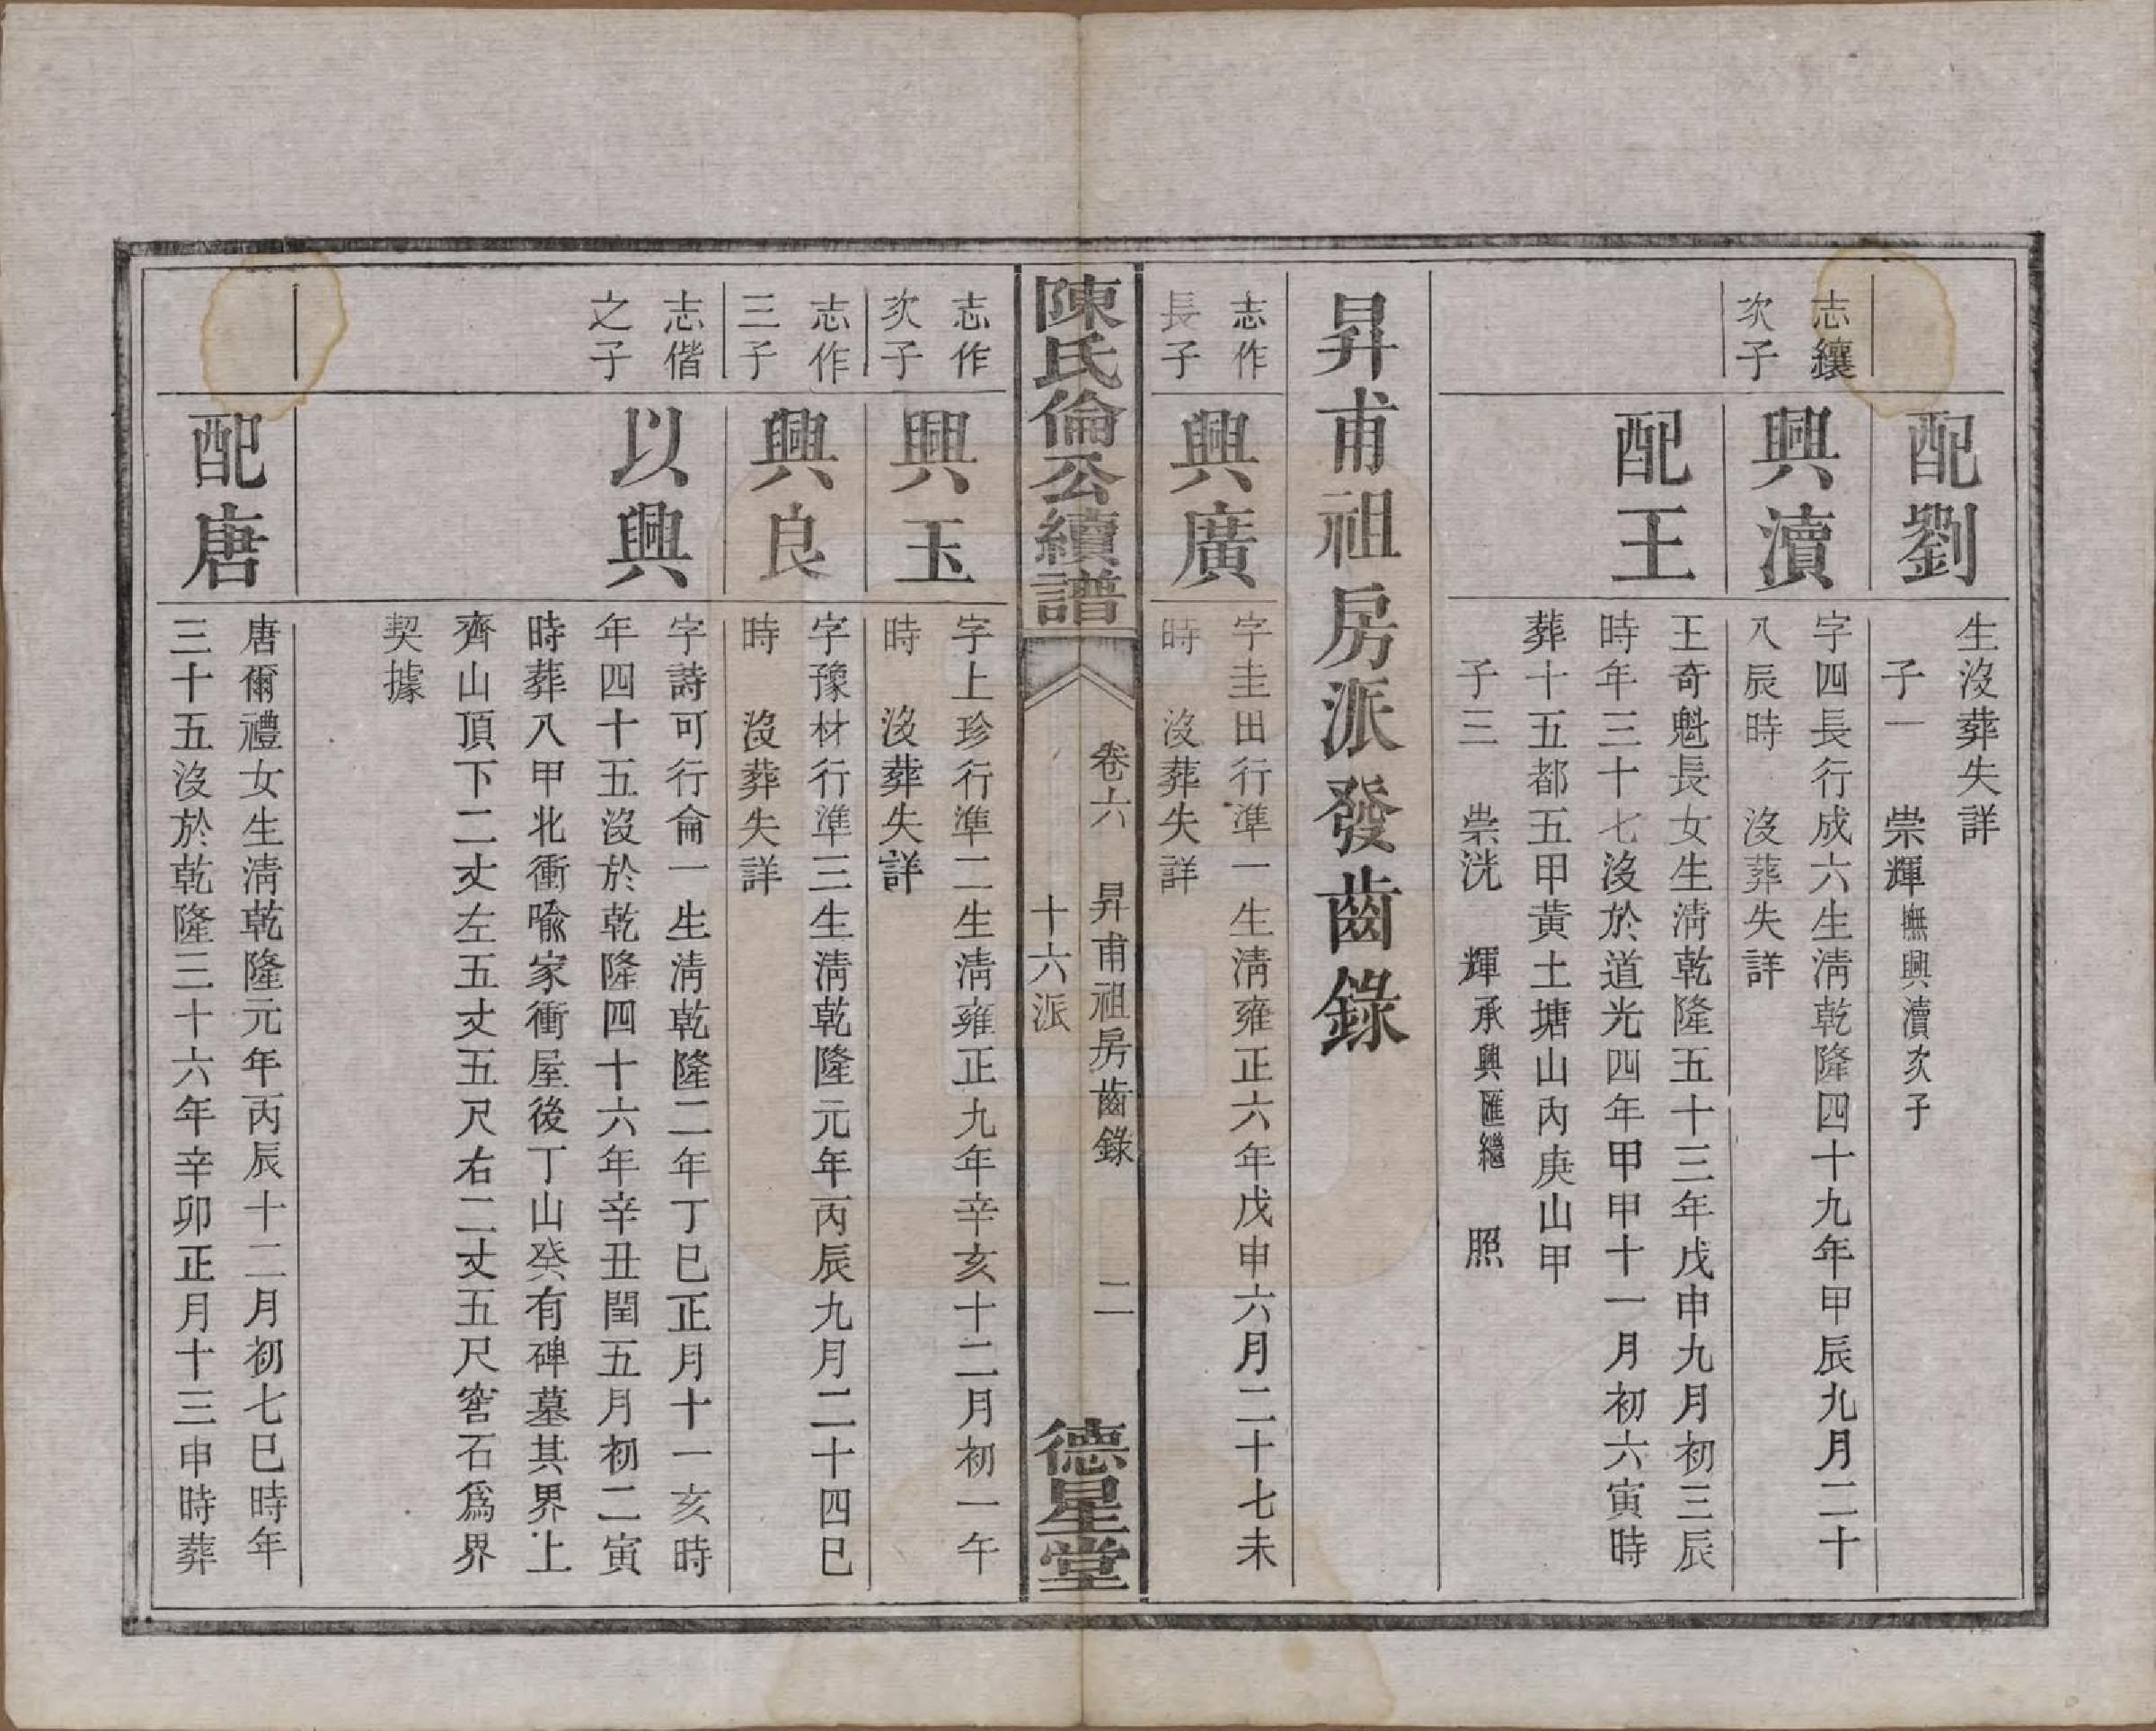 配劉
生沒葬失詳
子一　崇輝撫興瀆次子
志纕
次子
興瀆
字四長行成六生淸乾隆四十九年甲辰九月二十
八辰時　沒葬失詳
配王
王奇魁長女生淸乾隆五十三年戊申九月初三辰
時年三十七沒於道光四年甲申十一月初六寅時
葬十五都五甲黃土塘山內庚山甲
子三　崇洸　輝承興匯繼　照
昇甫祖房派發齒錄
志作
長子
興廣
字圭田行準一生淸雍正六年戊申六月二十七未
時　沒葬失詳
陳氏倫公續譜
卷六　昇甫祖房齒錄　二
十六派
德星堂
志作
次子
興玉
字上珍行準二生淸雍正九年辛亥十二月初一午
時　沒葬失詳
志作
三子
興良
字豫材行準三生淸乾隆元年丙辰九月二十四巳
時　沒葬失詳
志偕
之子
以興
字詩可行侖一生淸乾隆二年丁巳正月十一亥時
年四十五沒於乾隆四十六年辛丑閏五月初二寅
時葬八甲北衝喩家衝屋後丁山癸有碑墓其界上
齊山頂下二丈左五丈五尺右二丈五尺窖石爲界
契據
配唐
唐爾禮女生淸乾隆元年丙辰十二月初七巳時年
三十五沒於乾隆三十六年辛卯正月十三申時葬